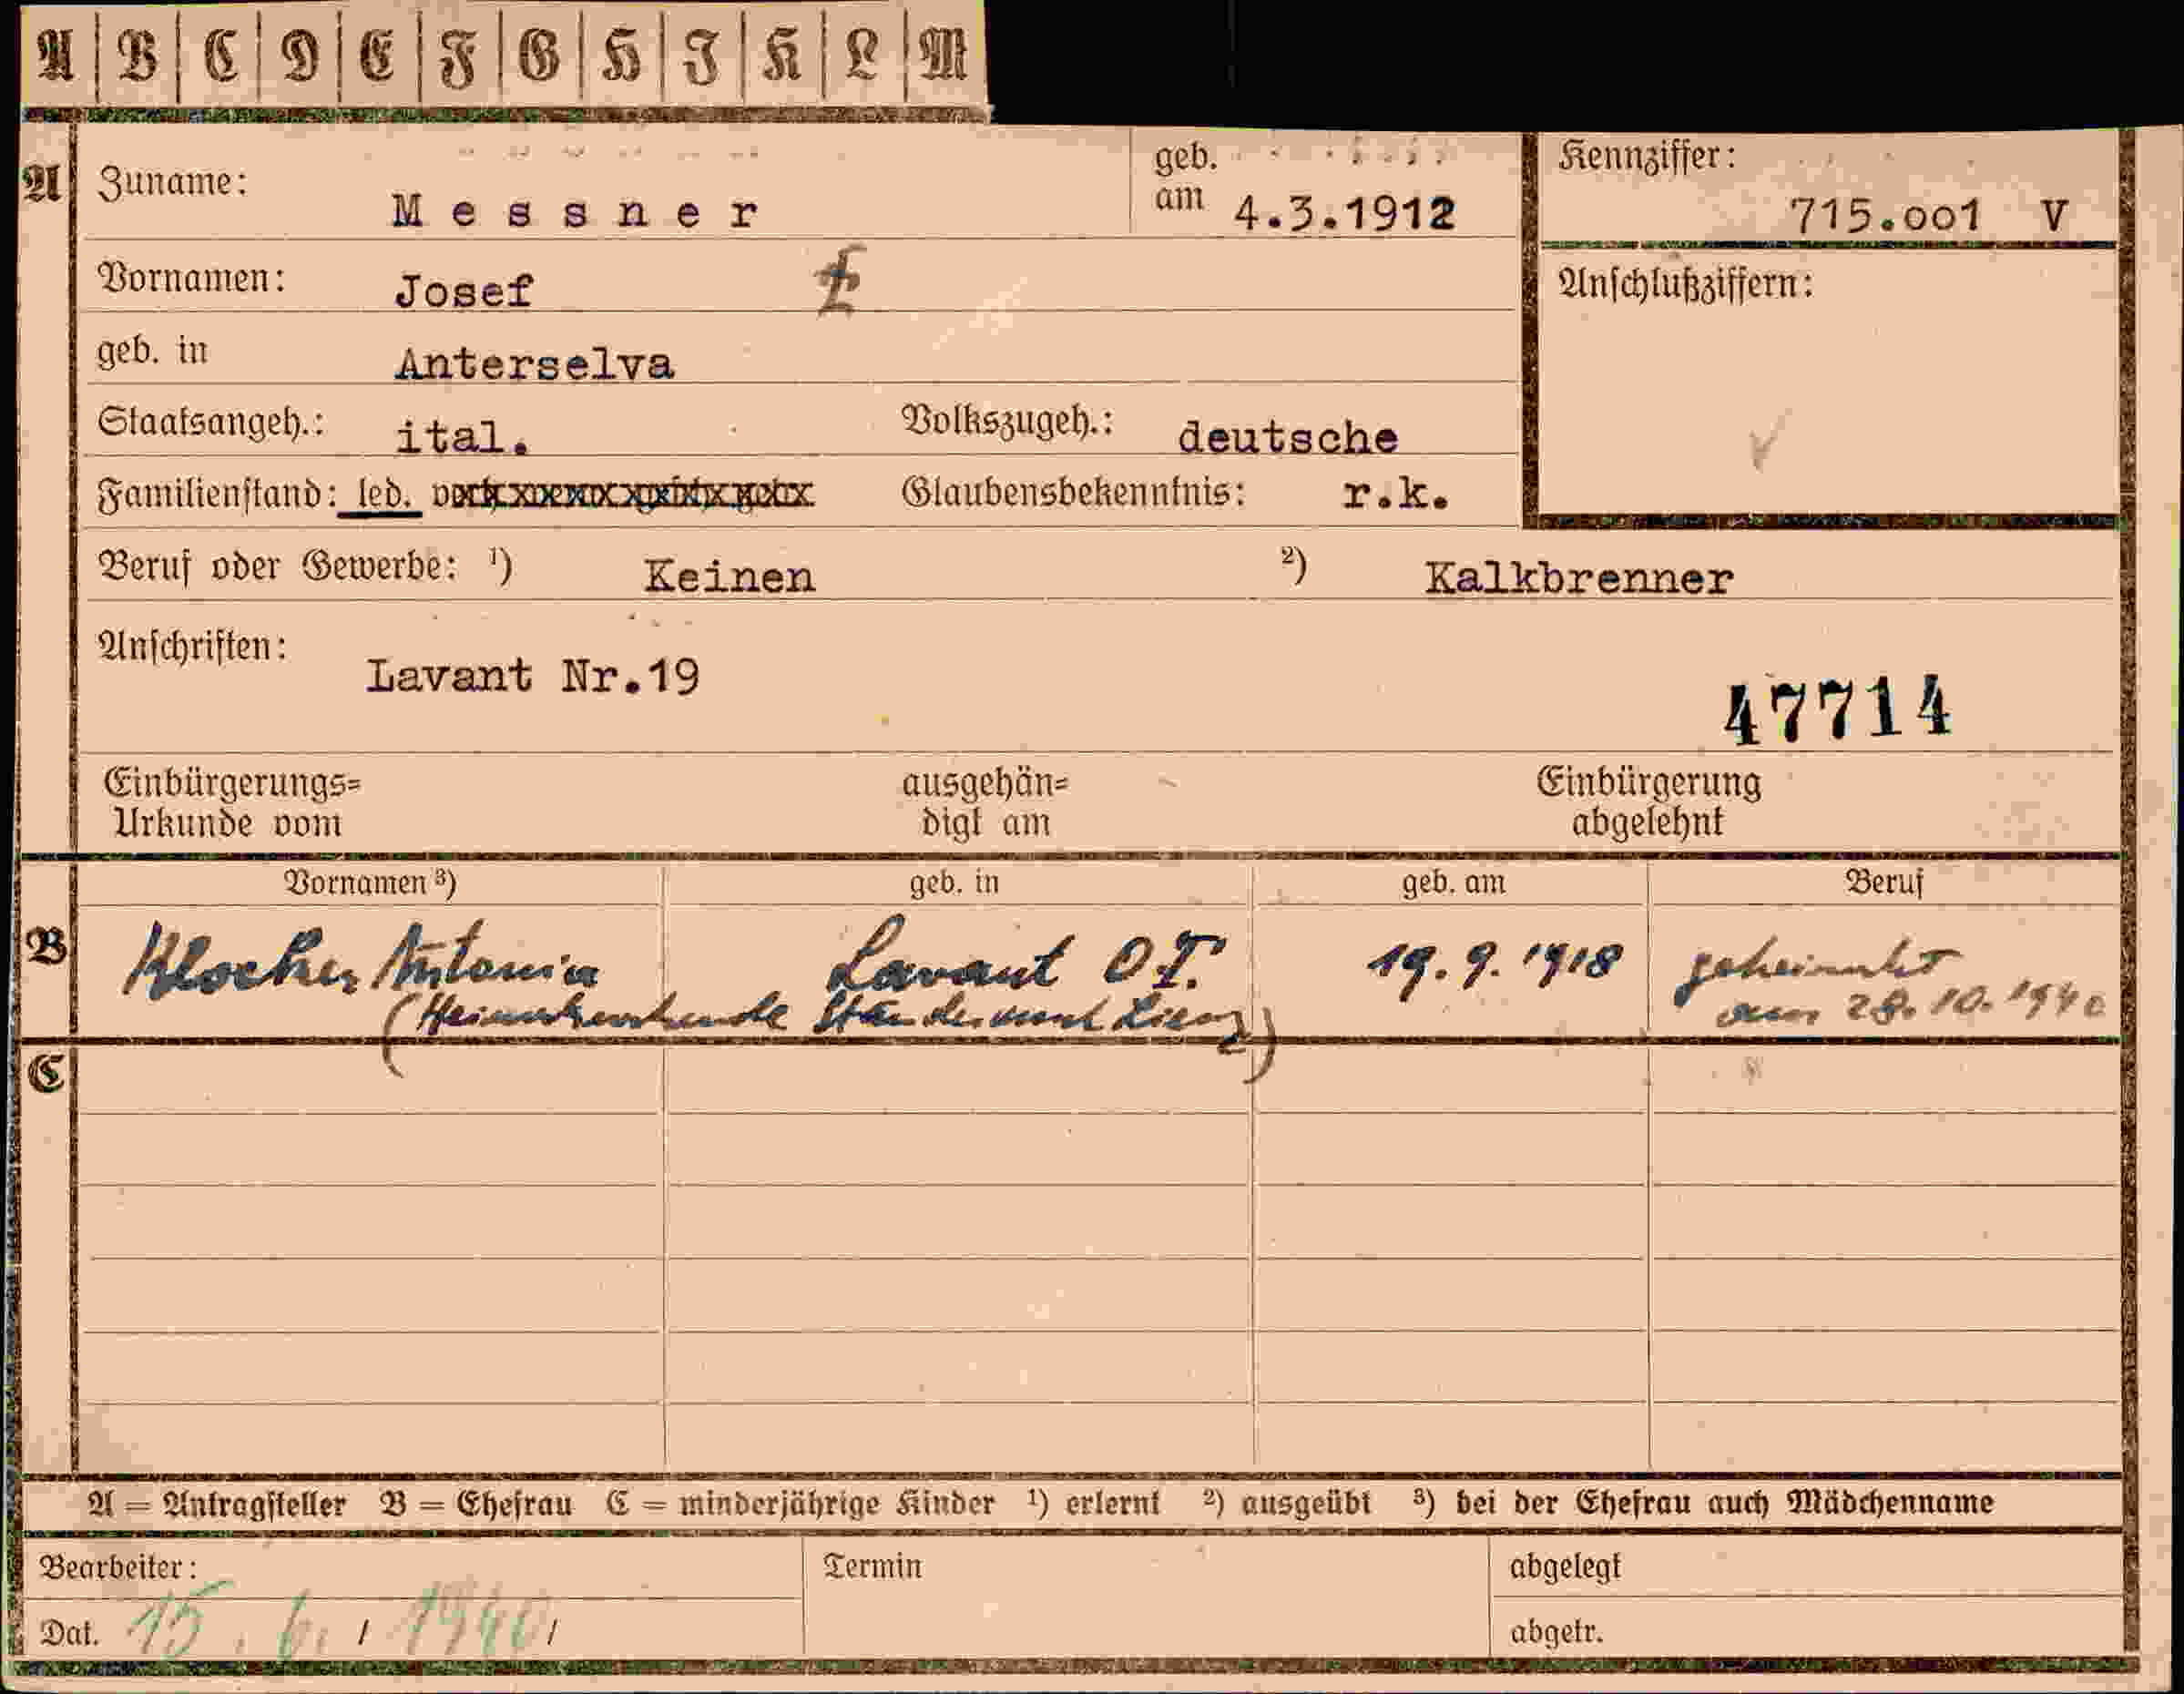 A B C D E F G H I K L M
A
Zuname: Messner
geb. am 4.3.1912
Kennziffer: 715.001 V
Vornamen: Josef
Anschlußziffern:
geb. in Anterselva
Staatsangeh.: ital. Volkszugeh.: deutsche
Familienstand: led. Glaubensbekenntnis: r.k.
Beruf oder Gewerbe: ¹) Keinen ²) Kalkbrenner
Anschriften: Lavant Nr.19
47714
Einbürgerungs= ausgehän= Einbürgerung
Urkunde vom digt am abgelehnt
Vornamen ³) geb. in geb. am Beruf
B Klocker Antonia Lavant O.T. 19.9.1918 geheiratet
Lienz) am 28.10.1940
C
A = Antragsteller B = Ehefrau C = minderjährige Kinder ¹) erlernt ²) ausgeübt ³) bei der Ehefrau auch Mädchenname
Bearbeiter: Termin abgelegt
Dat. 15.6./1940/ abgetr.